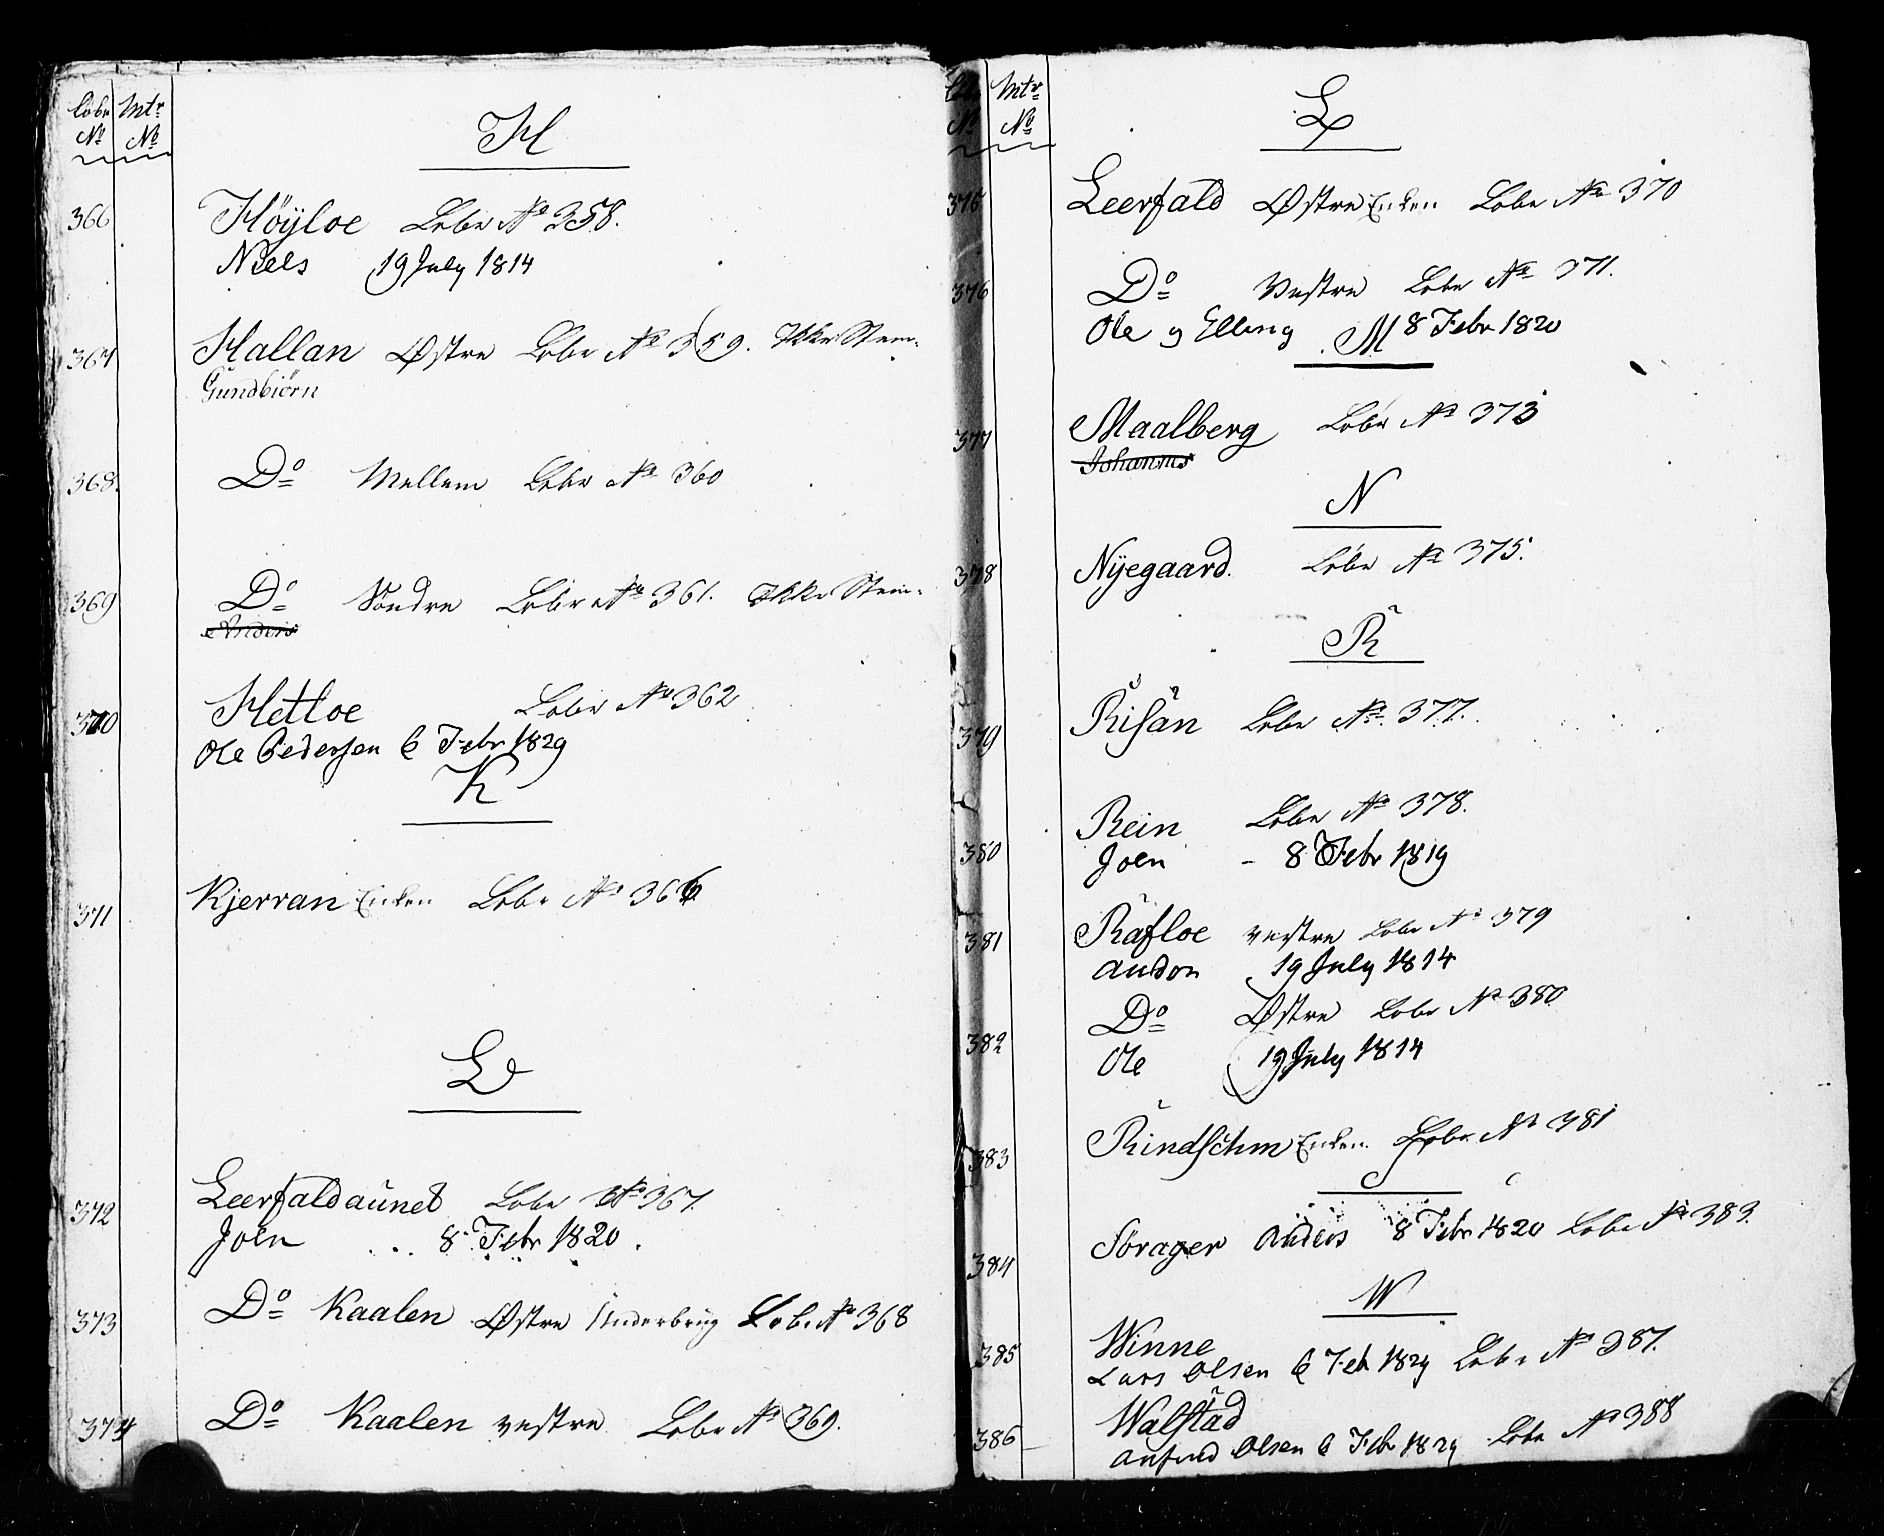 Löbe Mtr
No No
H
366 Höÿloe Löbe No 358.
Niels 19 July 1814
367 Hallan Østre Löbe No 359. Ikke Stem-
Gundbiörn
368. Do Mellem Löbe No 360
369 Do Söndre Löbe No 361. Ikke Stem-
Anders
370 Hetloe Löbe No 362
Ole Pedersen 6 Febr 1829
K
371 Kjerran Enken Löbe No 366
L
372 Leerfaldaunet Löbe No 367.
Joen 8 Febr 1820.
373 Do Kaalen Østre Underbrug Löbe No 368
374 Do Kaalen vestre Löbe No 369.
Mtr
No No
L
375 Leerfald Østre Enken Löbe No 370
376 Do Vestre Löbe No 371.
Ole og Elling 8 Febr 1820
M
377 Maalberg Löbe No 373
Johannes
N
378 Nÿegaard. Löbe No 375.
R
379 Risan Löbe No. 377.
380 Rein Löbe No 378.
Joen - 8 Febr 1819
381 Rafloe vestre Löbe No 379
Audon 19 July 1814
382 Do Østre Löbe No 380
Ole 19 July 1814
383 Rindschm Enken. Löbe No 381
S
384 Sörager Anders 8 Febr 1820 Löbe No 383.
W
385 Winne
Lars Olsen 6 Feb 1829 Löbe No 387.
386 Walstad
Anfind Olsen 6 Feb 1829 Löbe No 388